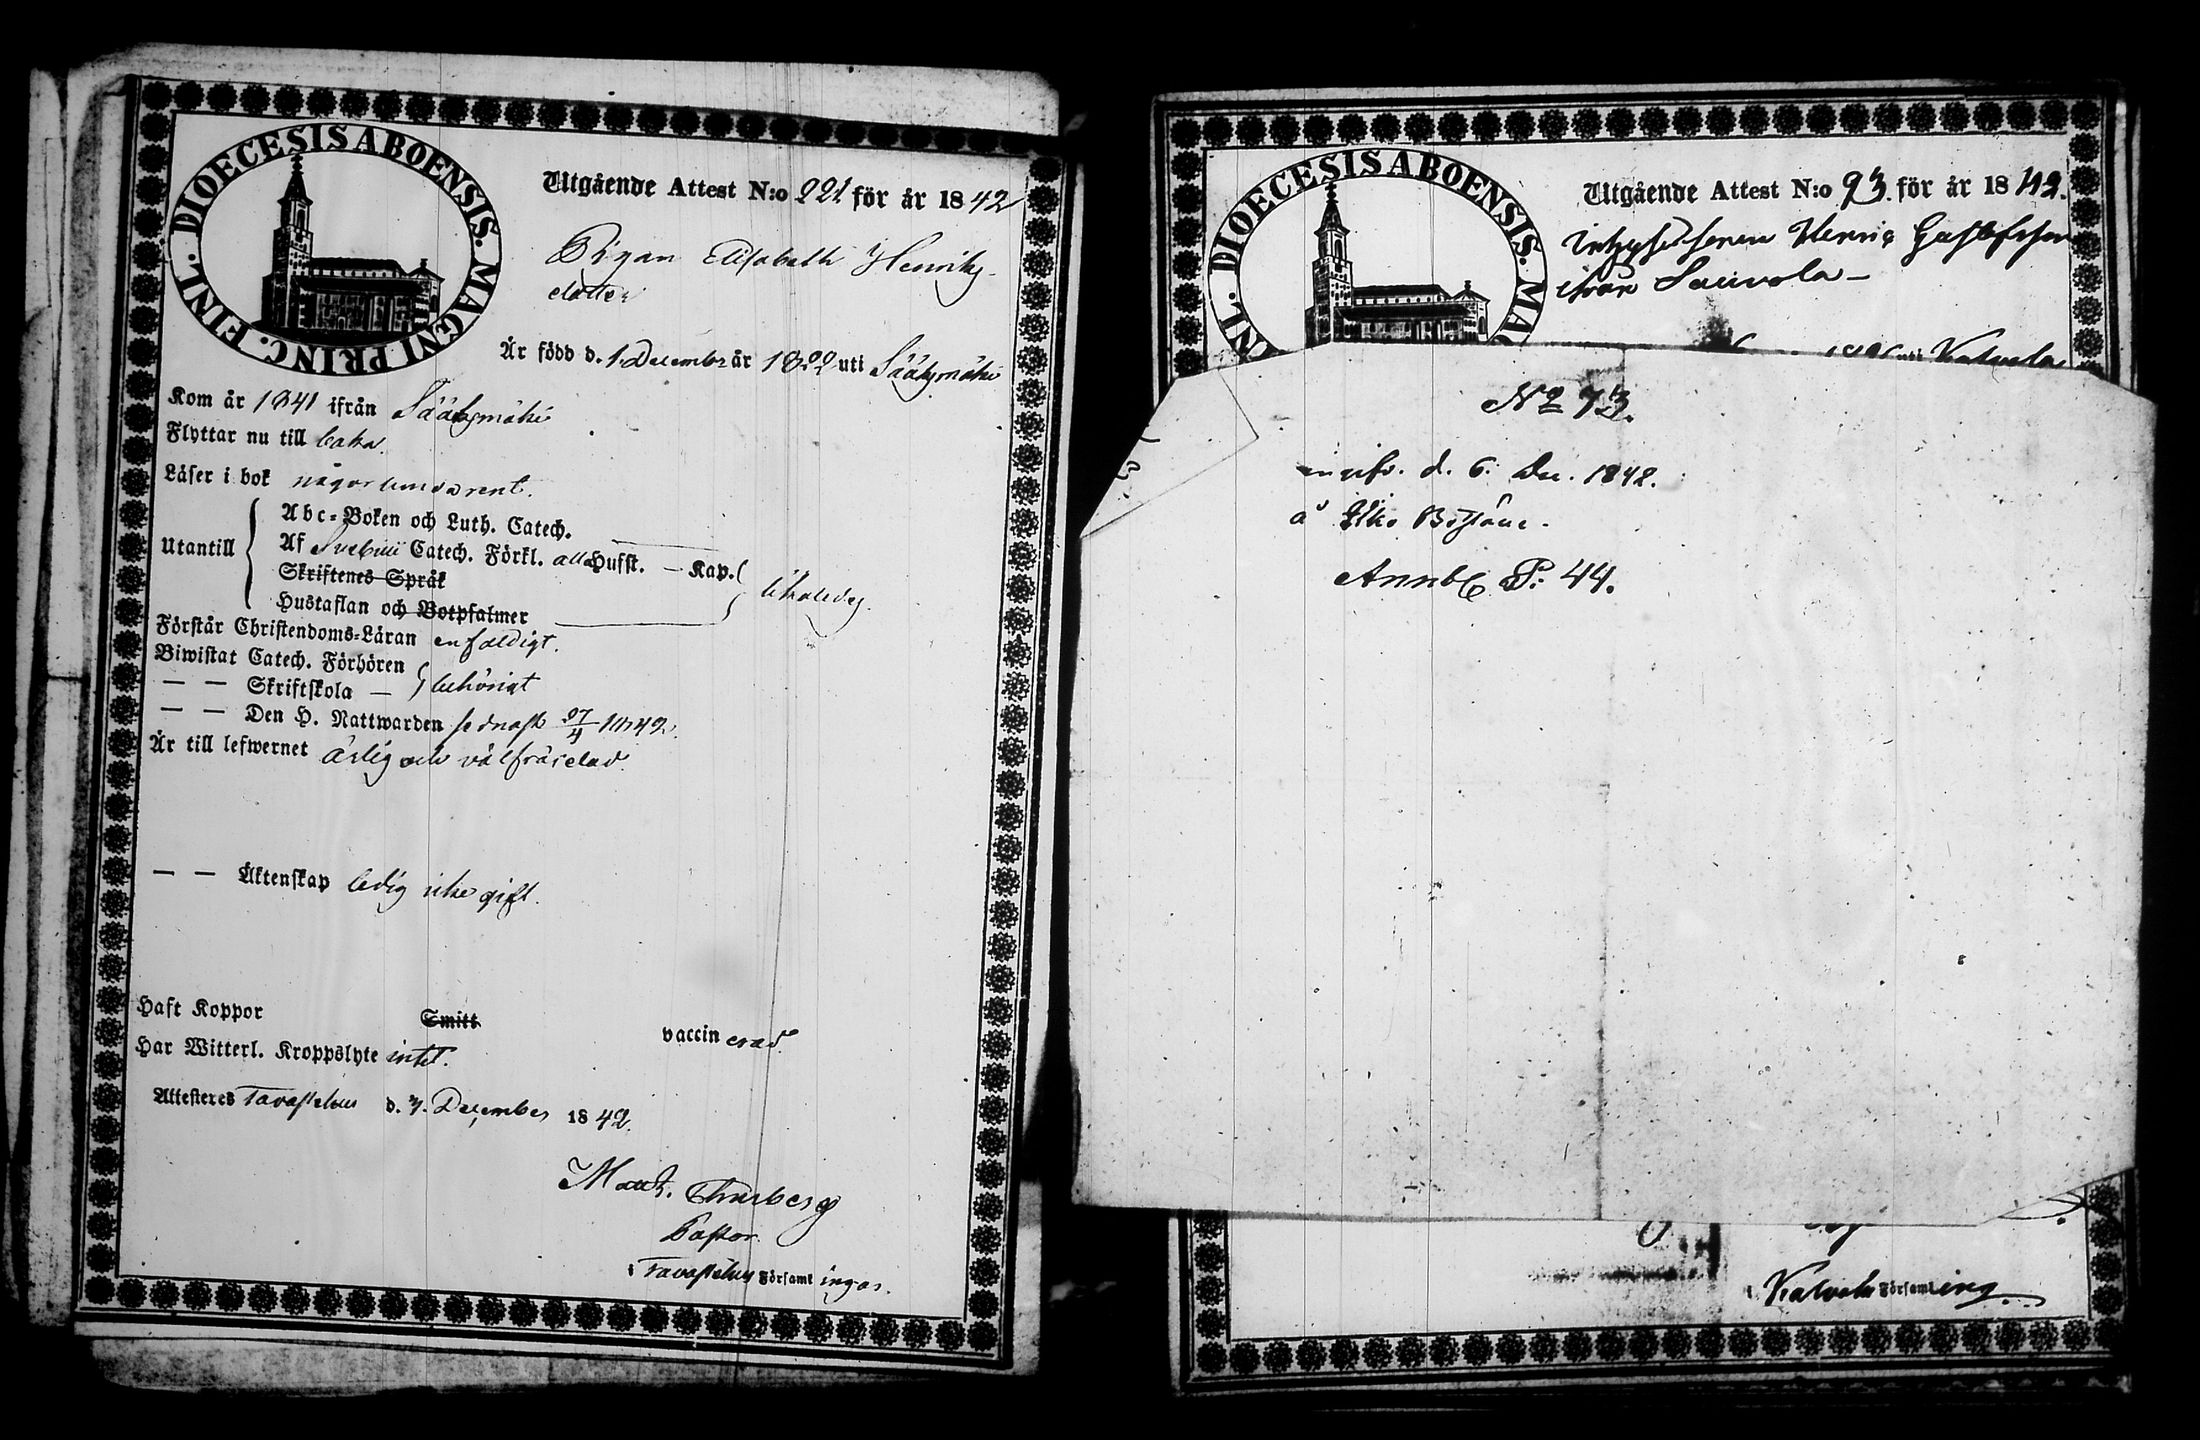 DIOECESIS ABOENSIS. MAGNI PRINC. FINL.
Utgående Attest N:o 221 för år 1842
Pigan Elisabeth Henriks-
dotter
Är född d. 1 December år 1822 uti Sääksmäki
Kom år 1841 ifrån Sääksmäki
Flyttar nu till baka.
Läser i bok någorlunda rent.
Utantill
Abc-Boken och Luth. Catech.
Af Svebilii Catech. Förkl. alla Hufst. — Kap.
Skriftenes Språk
Hustaflan och Botpsalmer
likaledes.
Förstår Christendoms-Läran enfaldigt.
Biwistat Catech. Förhören
— — Skriftskola — behörigt
— — Den H. Nattwarden sednast 27/4 1842.
Är till lefwernet ärlig och välfräjdad.
— — Äktenskap ledig icke gift.
Haft Koppor Smitt vaccinerad.
Har Witterl. Kroppslyte intet.
Attesteras Tavastehus d. 3. December 1842.
Pastor
i Tavastehus Församlingar.
DIOECESIS ABOENSIS. MA
NL.
Utgående Attest N:o 93. för år 1842.
Inhyses sonen Henric Gustafsson
ifrån Sauvola —
uti Kalvola
No 73.
d. 6. Dec. 1842.
å
Annb P: 44.
i Kalvola Församling